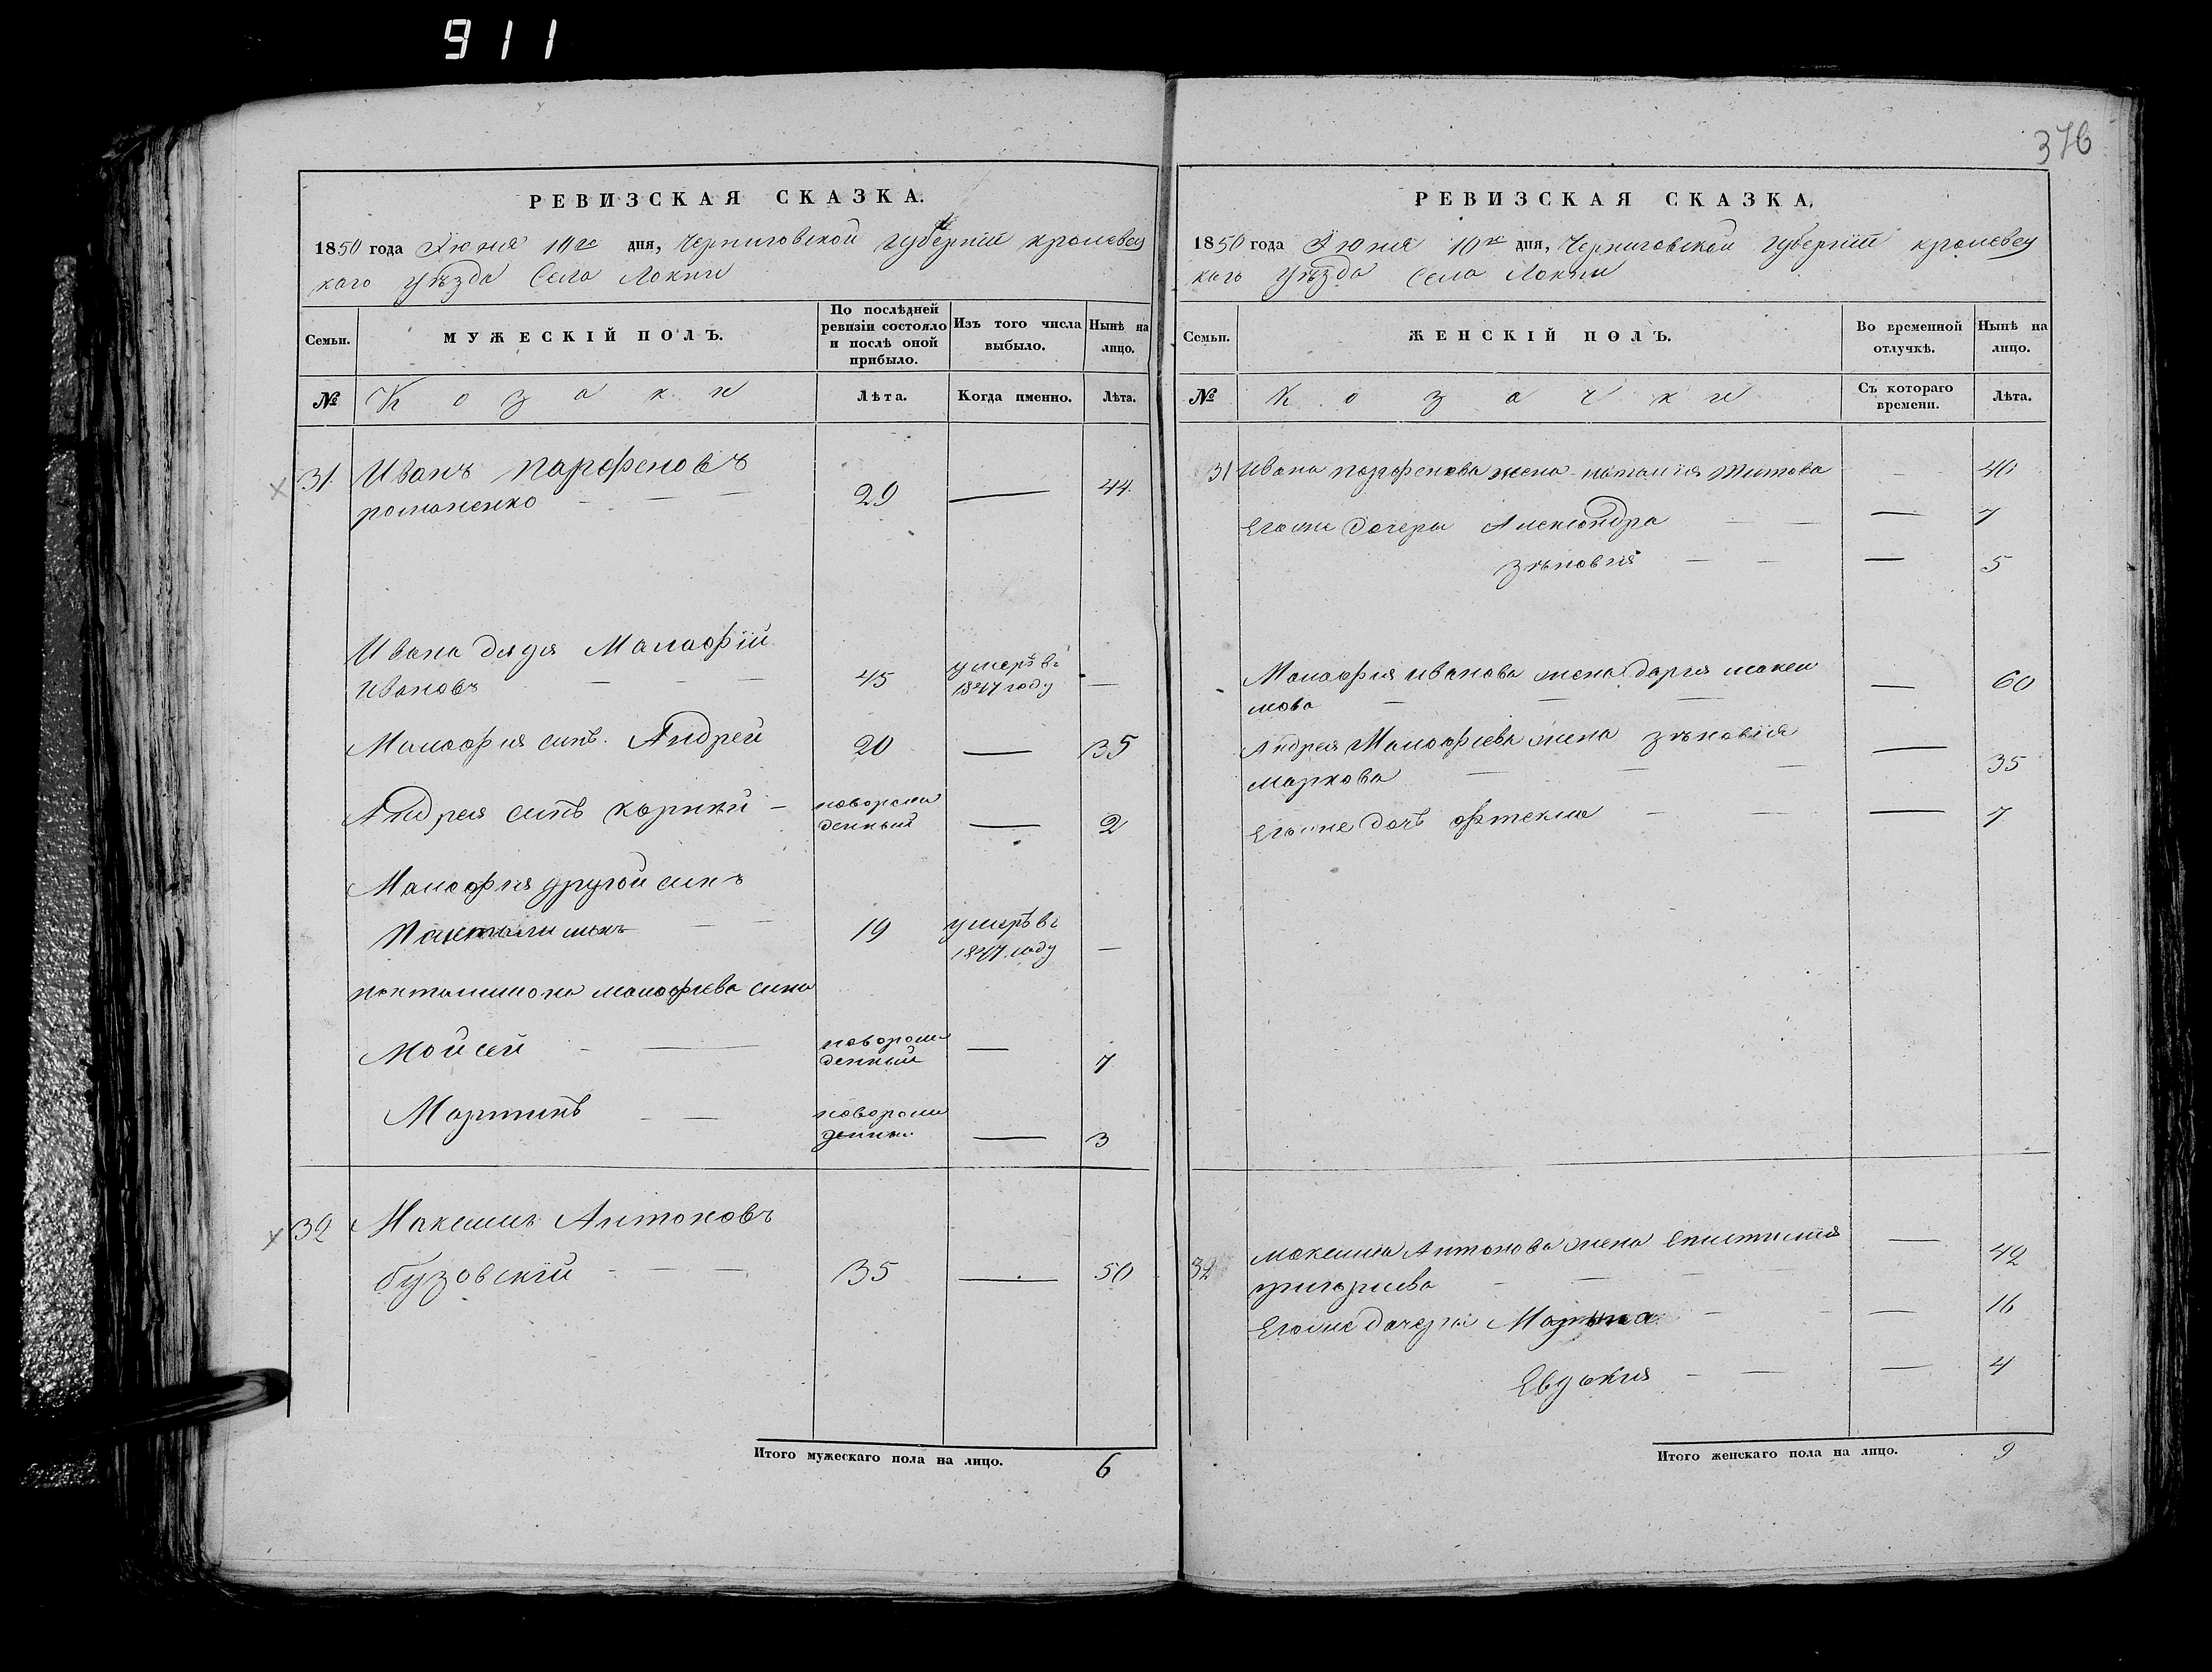 911
376
РЕВИЗСКАЯ СКАЗКА.
1850 года Іюня 10го дня, Черниговской губерніи кролевец
каго уѣзда Села Локни
Семьи.
МУЖЕСКІЙ ПОЛЪ.
По послѣдней ревизіи состояло и послѣ оной прибыло.
Изъ того числа выбыло.
Нынѣ на лицо.
№
Козаки
Лѣта.
Когда именно.
Лѣта.
31. Иванъ Парфеновъ
романенко — — — 29 — 44.
Ивана дядя Малафій
Ивановъ — — — 45 умеръ въ 1847 году —
Малафия синъ. Андрей 20 — 35
Андрея синъ корнѣй — новорож денный — 2
Малафия другой синъ
Пантелимонъ — — 19 умеръ въ 1847 году —
пантелимона малафиева сина
Мойсей — — новорож денный — 7
Мартинъ — — новорож денны. — 3
32 Максимъ Антоновъ
бузовскій — — — 35 — 50
Итого мужескаго пола на лицо. 6
РЕВИЗСКАЯ СКАЗКА.
1850 года Іюня 10го дня, Черниговской губерніи кролевец
каго уѣзда Села Локни
Семьи.
ЖЕНСКІЙ ПОЛЪ.
Во временной отлучкѣ.
Нынѣ на лицо.
№
Козачки
Съ котораго времени.
Лѣта.
31 Ивана парфенова жена наталія Титова — 40
Егоже дочери Александра — — — 7
зѣновия — — — 5
Малафия иванова жена дария макси
мова — — — — 60
Андрея Малафиева жена зѣновія
маркова — — — — 35
Егоже дочь — — — 7
32 максима Антонова жена Епистимия — 42
григориева — — —
Егоже дочери Марина — — — 16
Евдокия — — — 4
Итого женскаго пола на лицо. 9